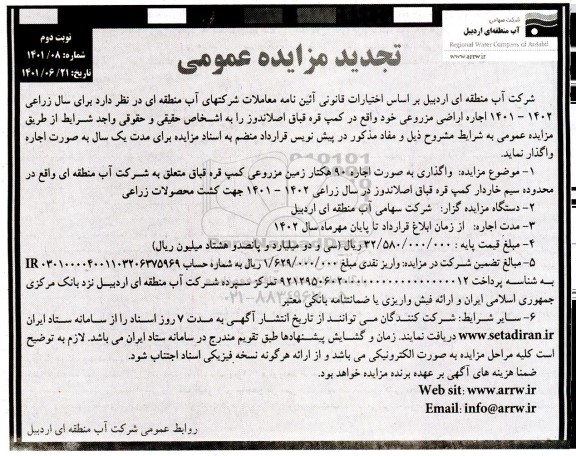 شرکت سهامی
آب منطقه‌ای اردبیل
Regional Water Company of Ardabil
www.arrw.ir
نوبت دوم
شماره: ۱۴۰۱/۰۸
تاریخ: ۱۴۰۱/۰۶/۲۱
تجدید مزایده عمومی
شرکت آب منطقه ای اردبیل بر اساس اختیارات قانونی آئین نامه معاملات شرکتهای آب منطقه ای در نظر دارد برای سال زراعی
۱۴۰۲ – ۱۴۰۱ اجاره اراضی مزروعی خود واقع در کمپ قره قباق اصلاندوز را به اشخاص حقیقی و حقوقی واجد شرایط از طریق
مزایده عمومی به شرایط مشروح ذیل و مفاد مذکور در پیش نویس قرارداد منضم به اسناد مزایده برای مدت یک سال به صورت اجاره
واگذار نماید.
۱- موضوع مزایده: واگذاری به صورت اجاره ۹۰ هکتار زمین مزروعی کمپ قره قباق متعلق به شرکت آب منطقه ای واقع در
محدوده سیم خاردار کمپ قره قباق اصلاندوز در سال زراعی ۱۴۰۲ – ۱۴۰۱ جهت کشت محصولات زراعی
۲- دستگاه مزایده گزار: شرکت سهامی آب منطقه ای اردبیل
۳- مدت اجاره: از زمان ابلاغ قرارداد تا پایان مهرماه سال ۱۴۰۲
۴- مبلغ قیمت پایه : ۳۲/۵۸۰/۰۰۰/۰۰۰ ریال (سی و دو میلیارد و پانصدو هشتاد میلیون ریال)
۵- مبالغ تضمین شرکت در مزایده: واریز نقدی مبلغ ۱/۶۲۹/۰۰۰/۰۰۰ ریال به شماره حساب IR ۰۳۰۱۰۰۰۰۴۰۰۱۱۰۳۲۰۶۳۷۵۹۶۹
به شناسه پرداخت تمرکز سپرده شرکت آب منطقه ای اردبیل نزد بانک مرکزی
جمهوری اسلامی ایران و ارائه فیش واریزی یا ضمانتنامه بانکی معتبر
۶- سایر شرایط: شرکت کنندگان می توانند از تاریخ انتشار آگهی به مدت ۷ روز اسناد را از سامانه ستاد ایران
www.setadiran.ir دریافت نمایند. زمان و گشایش پیشنهادها طبق تقویم مندرج در سامانه ستاد ایران می باشد. لازم به توضیح
است کلیه مراحل مزایده به صورت الکترونیکی می باشد و از ارائه هرگونه نسخه فیزیکی اسناد اجتناب شود.
ضمنا هزینه های آگهی بر عهده برنده مزایده خواهد بود.
Web sit: www.arrw.ir
Email: info@arrw.ir
روابط عمومی شرکت آب منطقه ای اردبیل